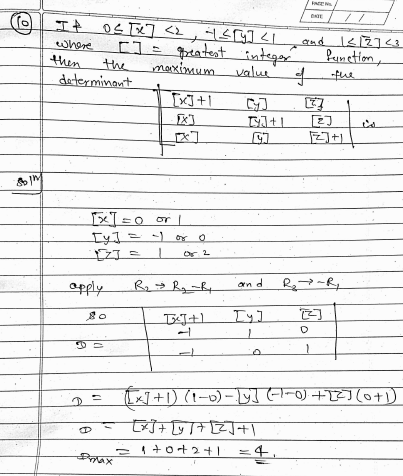 PAGE No.
DATE / /
(10) If 0 ≤ [x] < 2, -1 ≤ [y] < 1 and 1 ≤ [z] < 3
where [ ] = greatest integer function,
then the maximum value of the
determinant
| [x]+1 [y] [z] |
| [x] [y]+1 [z] | is
| [x] [y] [z]+1 |
solⁿ
[x] = 0 or 1
[y] = -1 or 0
[z] = 1 or 2
apply R₂ → R₂ - R₁ and R₃ → - R₁
so | [x]+1 [y] [z] |
D = | -1 1 0 |
| -1 0 1 |
D = ([x]+1) (1-0) - [y] (-1-0) + [z] (0+1)
D = [x] + [y] + [z] + 1
Dmax = 1+0+2+1 = 4.